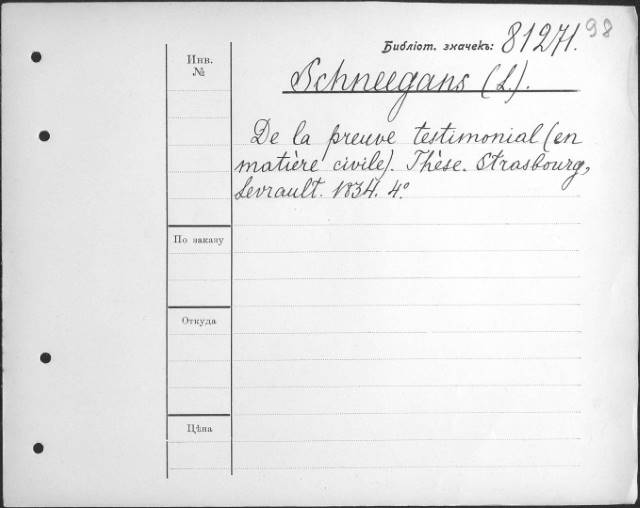 98
Библіот. значекъ: 81271.
Инв. №
Schneegans (L.).
De la preuve testimonial (en
matière civile). Thèse. Strasbourg,
Levrault. 1834. 4º
По заказу
Откуда
Цѣна